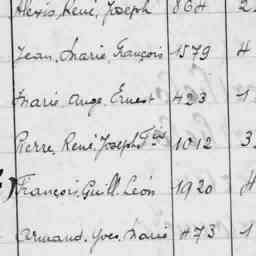 Alexis, René, Joseph 864 2
Jean, Marie, François 1579 4
Marie Ange, Ernest 423 1
Pierre, René, Joseph Fçois 1012 3
François, Guill. Léon 1920 4
Armand, Yves, Marie 473 1